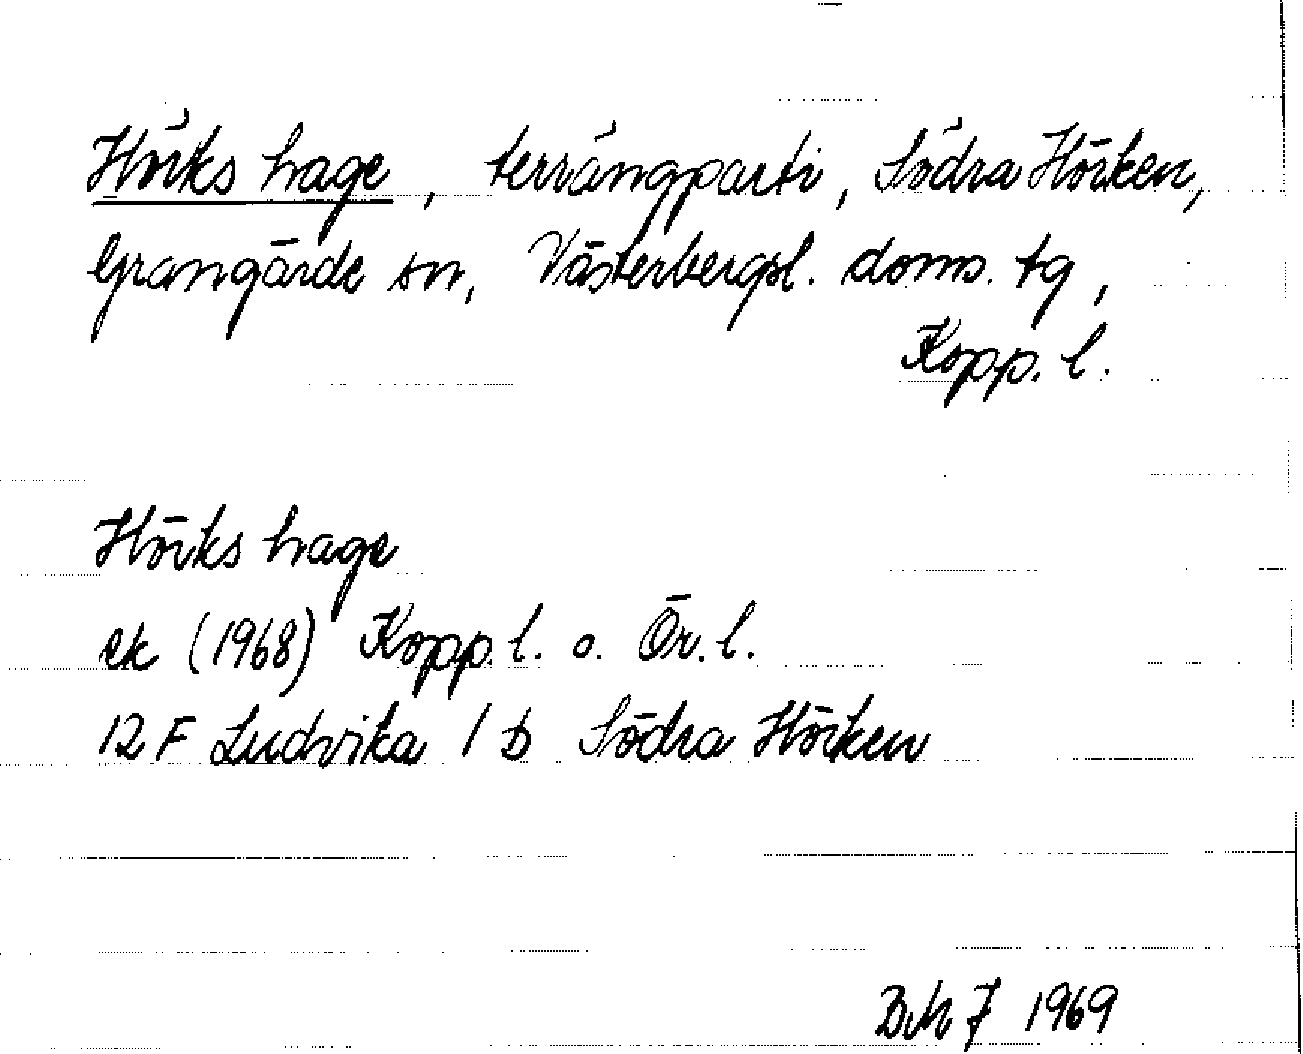 Hörks hage, terrängparti, Södra Hörken,
Grangärde sn, Västerbergsl. doms. tg,
Kopp. l.
Hörks hage
ek (1968) Kopp. l. o. Ör. l.
12 F Ludvika 1 b Södra Hörken
1969